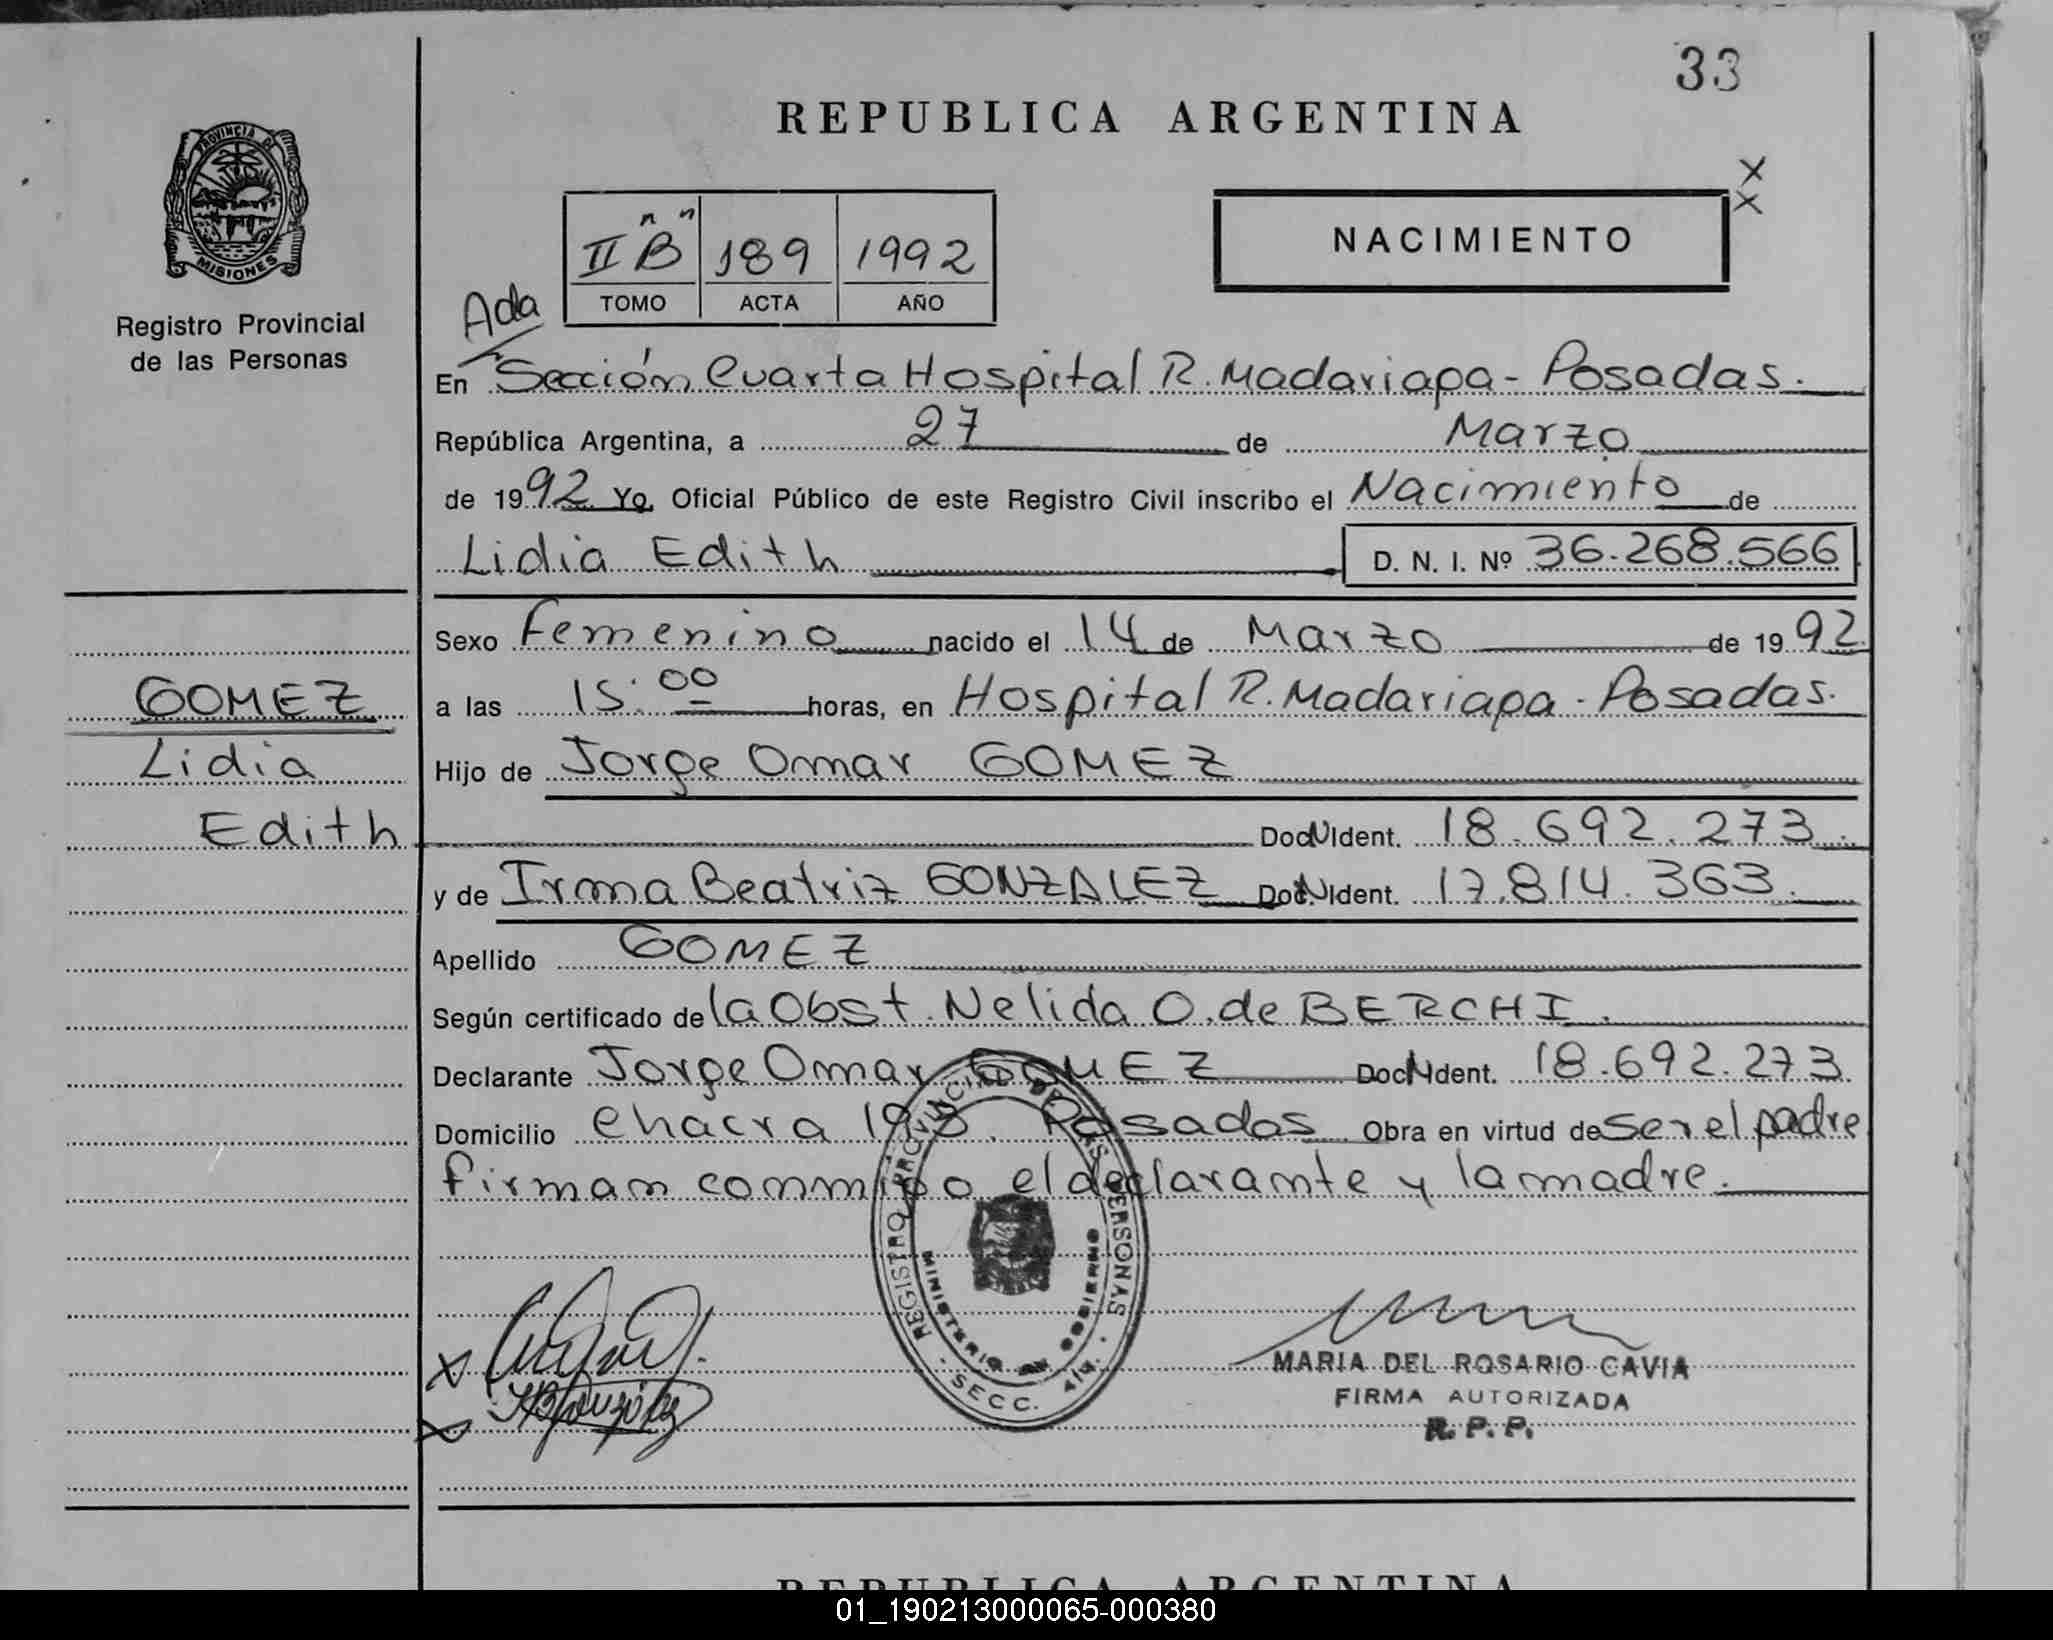 33
REPUBLICA ARGENTINA
PROVINCIA DE
MISIONES
Registro Provincial
de las Personas
II "B" 189 1992
TOMO ACTA AÑO
NACIMIENTO
Ada
En Sección Cuarta Hospital R. Madariaga - Posadas.
República Argentina, a 27 de Marzo
de 1992 Yo, Oficial Público de este Registro Civil inscribo el Nacimiento de
Lidia Edith D. N. I. Nº 36.268.566
Sexo Femenino nacido el 14 de Marzo de 1992
a las 15:00 horas, en Hospital R. Madariaga - Posadas.
GOMEZ
Lidia
Edith
Hijo de Jorge Omar GOMEZ
Doc N Ident. 18.692.273
y de Irma Beatriz GONZALEZ Doc N Ident. 17.814.363.
Apellido GOMEZ
Según certificado de la Obst. Nelida O. de BERCHI.
Declarante Jorge Omar GOMEZ Doc N Ident. 18.692.273
Domicilio Chacra 198. Posadas Obra en virtud de ser el padre
firman conmigo el declarante y la madre.
REGISTRO PROVINCIAL DE LAS PERSONAS
MINISTERIO DE GOBIERNO
SECC. 4ta.
MARIA DEL ROSARIO CAVIA
FIRMA AUTORIZADA
R. P. P.
REPUBLICA ARGENTINA
01_190213000065-000380